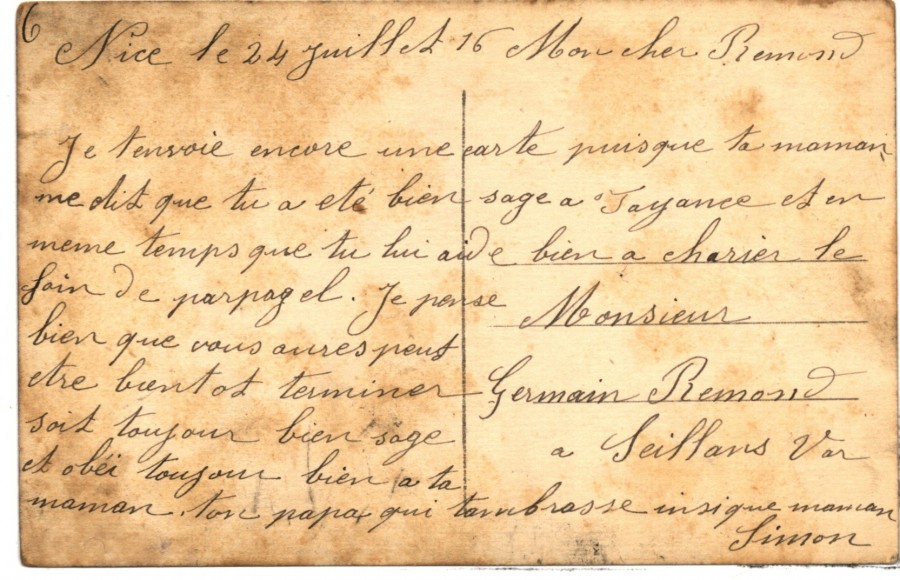 6
Nice le 24 Juillet 16 Mon cher Remond
Je tenvoie encore une carte puisque ta maman
me dit que tu a eté bien sage a Fayance et en
meme temps que tu lui aide bien a charier le
foin de parpagel. Je pense
bien que vous aures peut
etre bientot terminer
soit toujour bien sage
et obéi toujour bien a ta
maman. ton papa qui tambrasse insique maman
Simon
Monsieur
Germain Remond
a Seillans Var